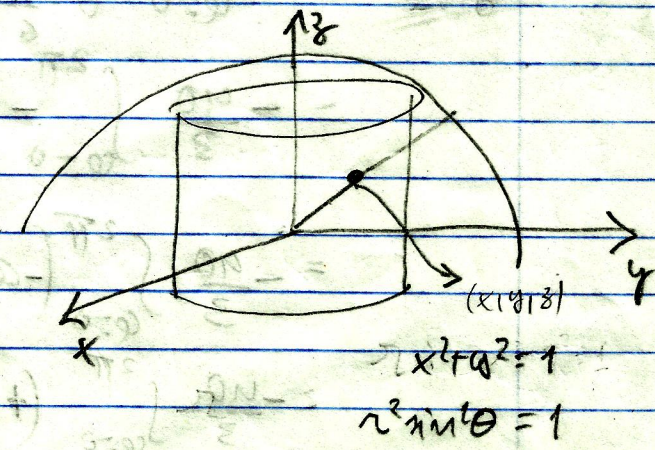 z
y
x
(x,y,z)
x²+y²=1
r²sin²θ=1